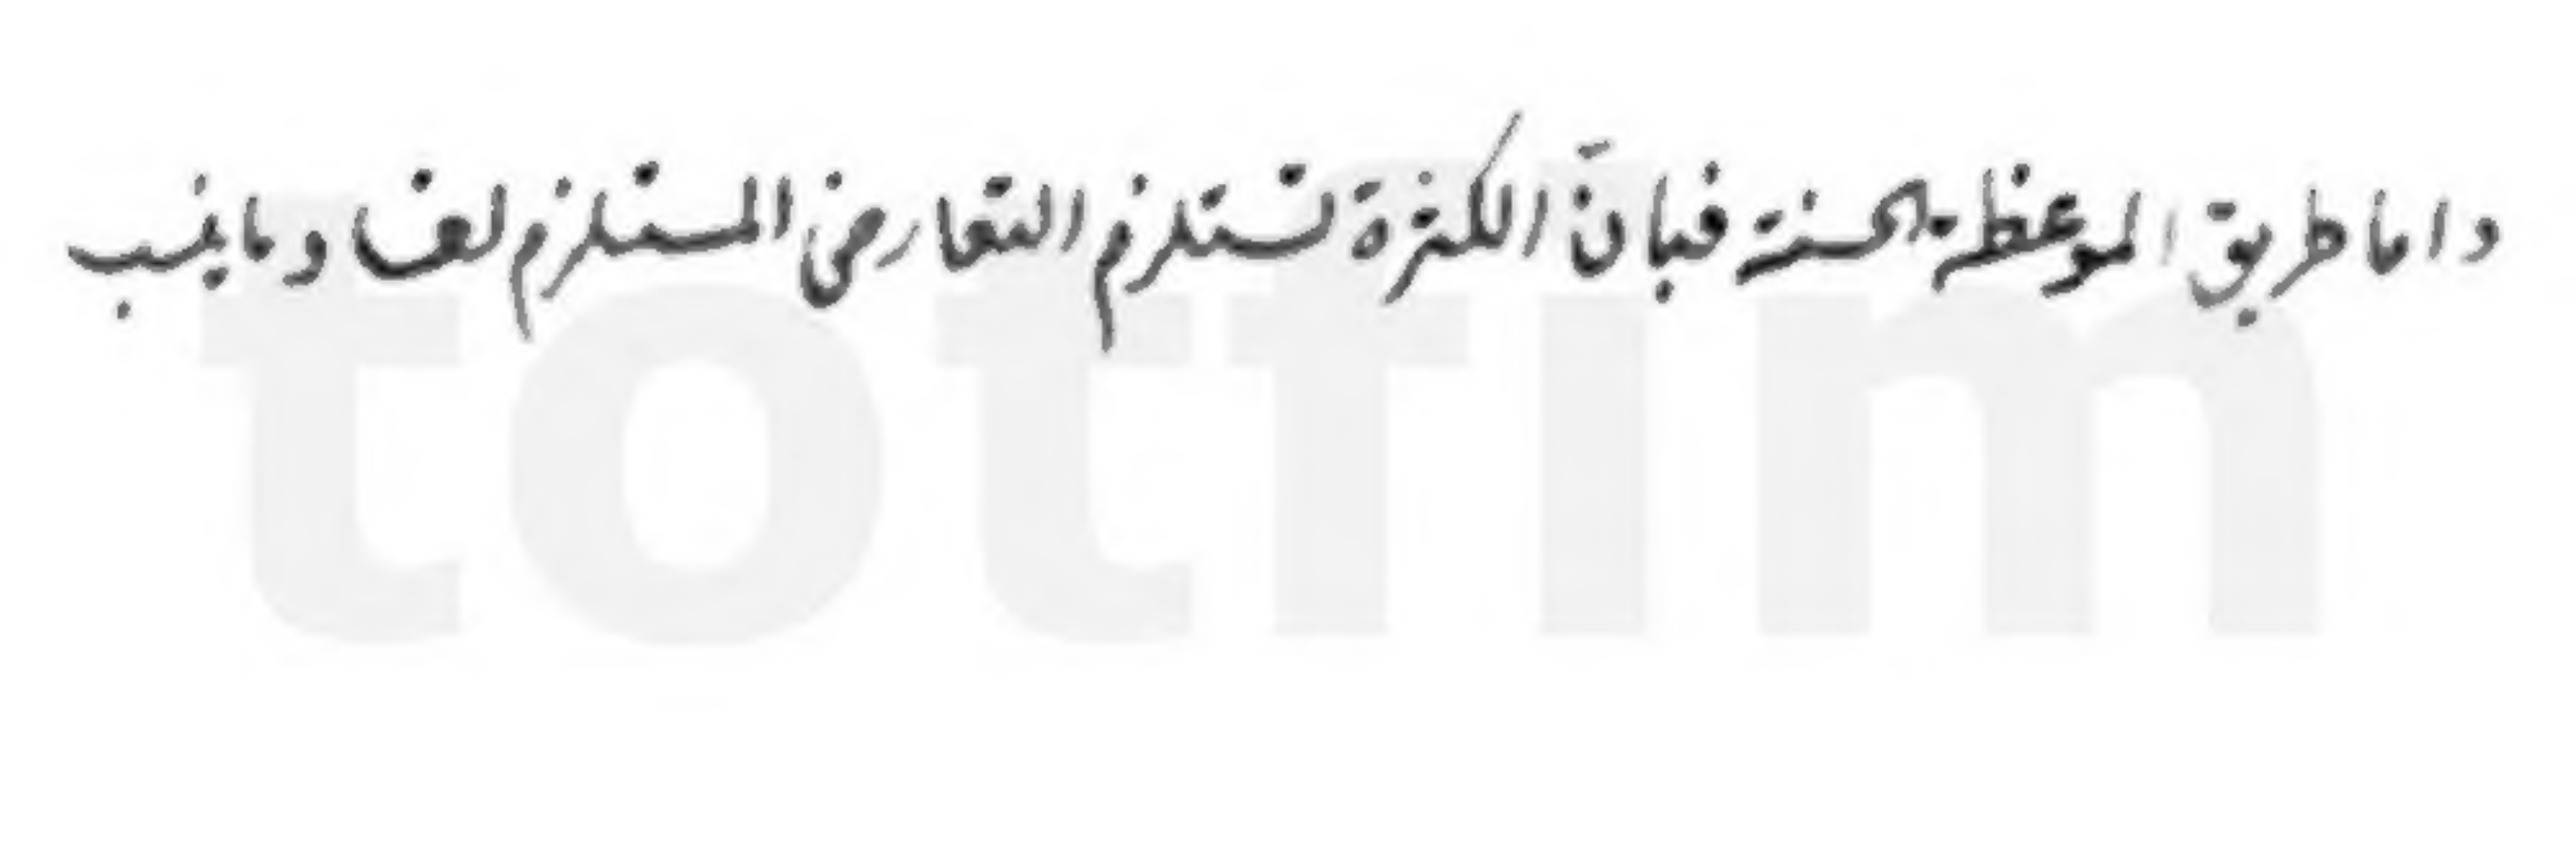 واما طريق الموعظة الحسنة فبانّ الكثرة تستلزم التعارض المستلزم وما ينسب
totfim